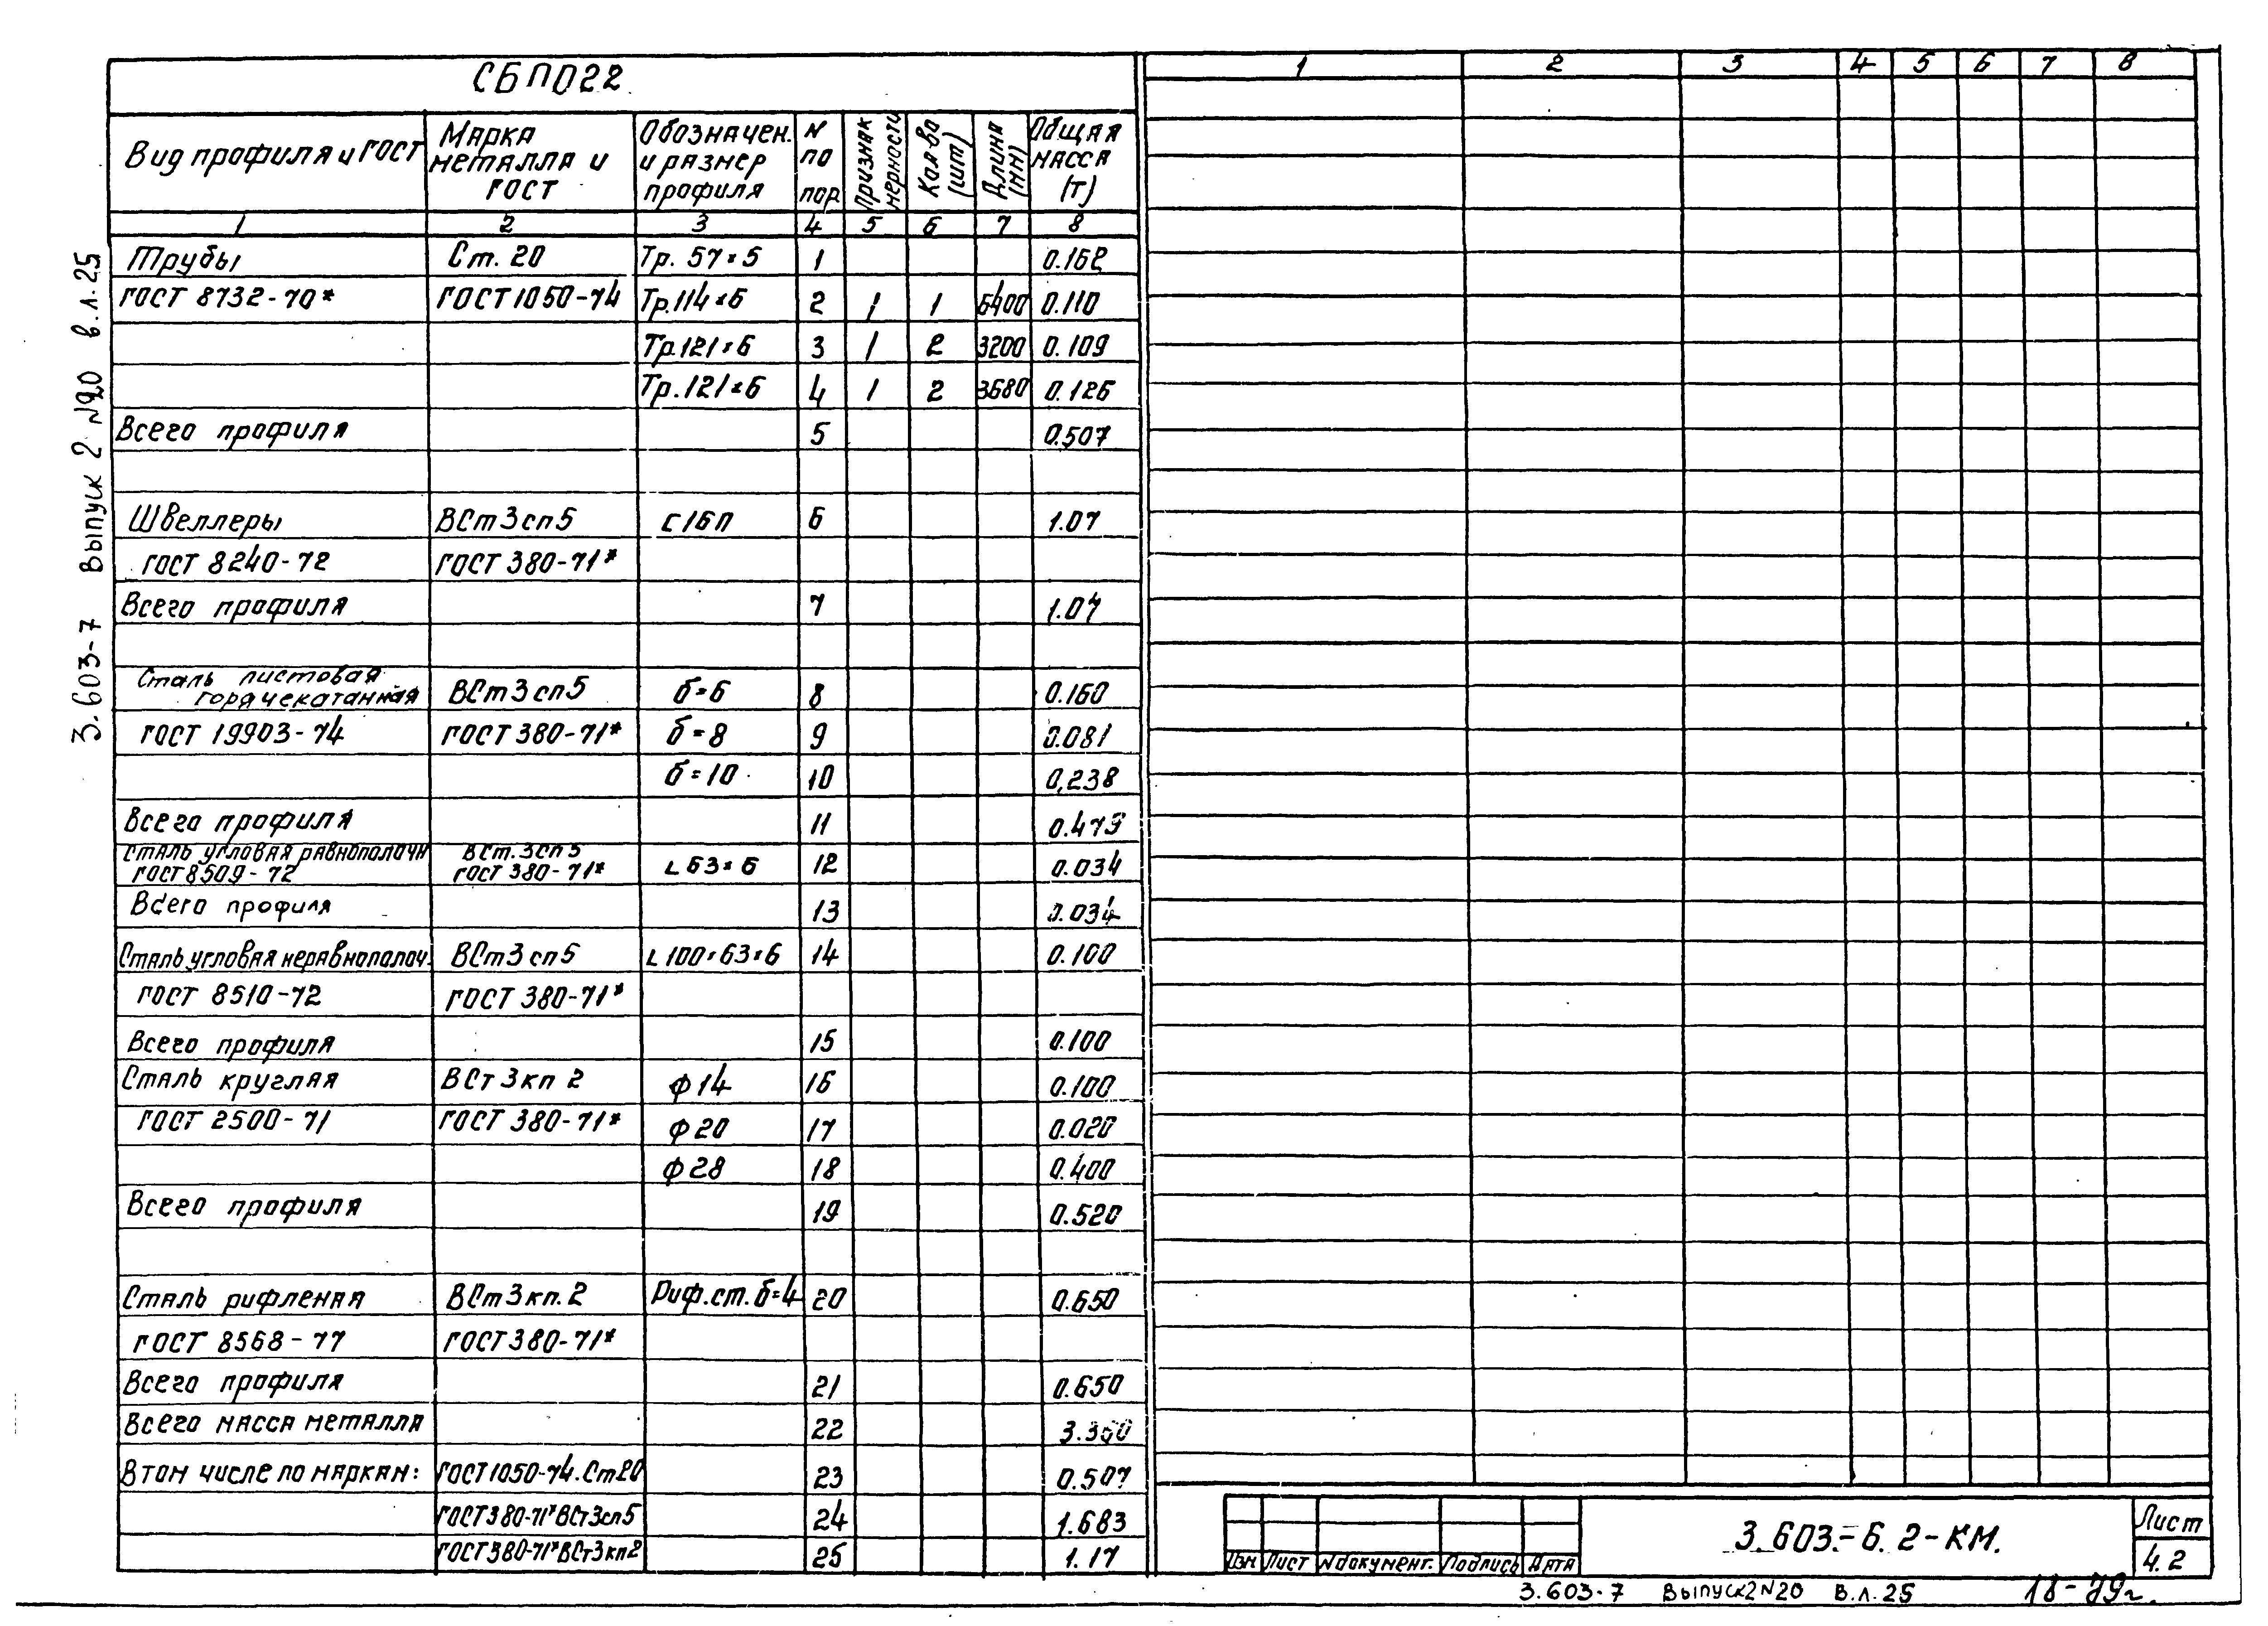 СБПО22
Вид профиля и ГОСТ | Марка металла и ГОСТ | Обозначен. и размер профиля | N по пор | Признак мерности | Кол-во (шт) | Длина (мм) | Общая масса (т)
1 2 3 4 5 6 7 8
Трубы Ст. 20 Тр. 57×5 1 0.162
ГОСТ 8732-70* ГОСТ 1050-74 Тр.114×6 2 1 1 6400 0.110
Тр.121×6 3 1 2 3200 0.109
Тр.121×6 4 1 2 3680 0.126
Всего профиля 5 0.507
Швеллеры ВСт3сп5 С16П 6 1.07
ГОСТ 8240-72 ГОСТ 380-71*
Всего профиля 7 1.07
Сталь листовая
горячекатанная ВСт3сп5 б=6 8 0.160
ГОСТ 19903-74 ГОСТ 380-71* б=8 9 0.081
б=10 10 0,238
Всего профиля 11 0.479
Сталь угловая равнополочн ВСт.3сп5
ГОСТ 8509-72 ГОСТ 380-71* L 63×6 12 0.034
Всего профиля 13 0.034
Сталь угловая неравнополоч. ВСт3сп5 L 100×63×6 14 0.100
ГОСТ 8510-72 ГОСТ 380-71*
Всего профиля 15 0.100
Сталь круглая ВСт3кп2 ф14 16 0.100
ГОСТ 2500-71 ГОСТ 380-71* ф20 17 0.020
ф28 18 0.400
Всего профиля 19 0.520
Сталь рифленая ВСт3кп.2 Риф.ст.б=4 20 0.650
ГОСТ 8568-77 ГОСТ 380-71*
Всего профиля 21 0.650
Всего масса металла 22
В том числе по маркам: ГОСТ1050-74.Ст20 23 0.507
ГОСТ380-71*ВСт3сп5 24 1.683
ГОСТ380-71*ВСт3кп2 25 1.17
3.603-7 Выпуск 2 №20 в.л.25
1 2 3 4 5 6 7 8
Изм Лист N документ. Подпись Дата
3.603.-6.2-КМ.
Лист
4.2
3.603-7 Выпуск2 N20 В.л.25 18-79г.